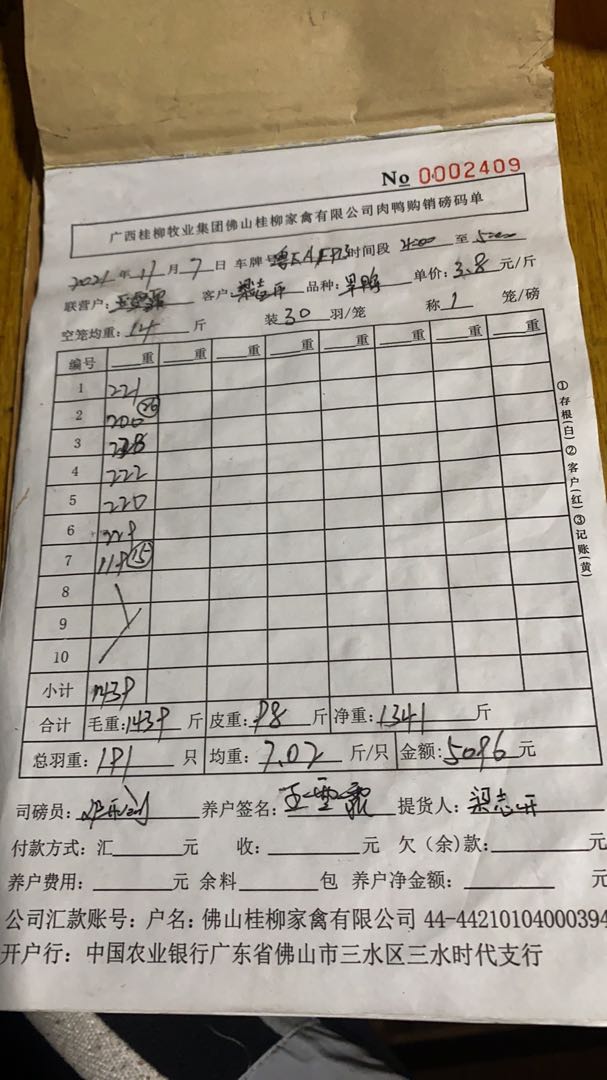 No 0002409
广西桂柳牧业集团佛山桂柳家禽有限公司肉鸭购销磅码单
2021年11月7日 车牌 时间段 至
联营户: 王雪霏 客户: 梁志开 品种: 单价: 3.8元/斤
空笼均重: 14 斤 装30羽/笼 称1笼/磅
编号 重 重 重 重 重 重 重 重
1 221
2 200 (26)
3 228
4 222
5 220
6 229
7 119 (15)
8
9
10
小计 1439
合计 毛重: 1439斤 皮重: 98斤 净重: 1341斤
总羽重: 191 只 均重: 7.02斤/只 金额: 5096元
司磅员: 养户签名: 王雪霏 提货人: 梁志开
付款方式: 汇 元 收: 元 欠(余)款: 元
养户费用: 元 余料 包 养户净金额: 元
公司汇款账号: 户名: 佛山桂柳家禽有限公司 44-44210104000394
开户行: 中国农业银行广东省佛山市三水区三水时代支行
①存根(白)②客户(红)③记账(黄)